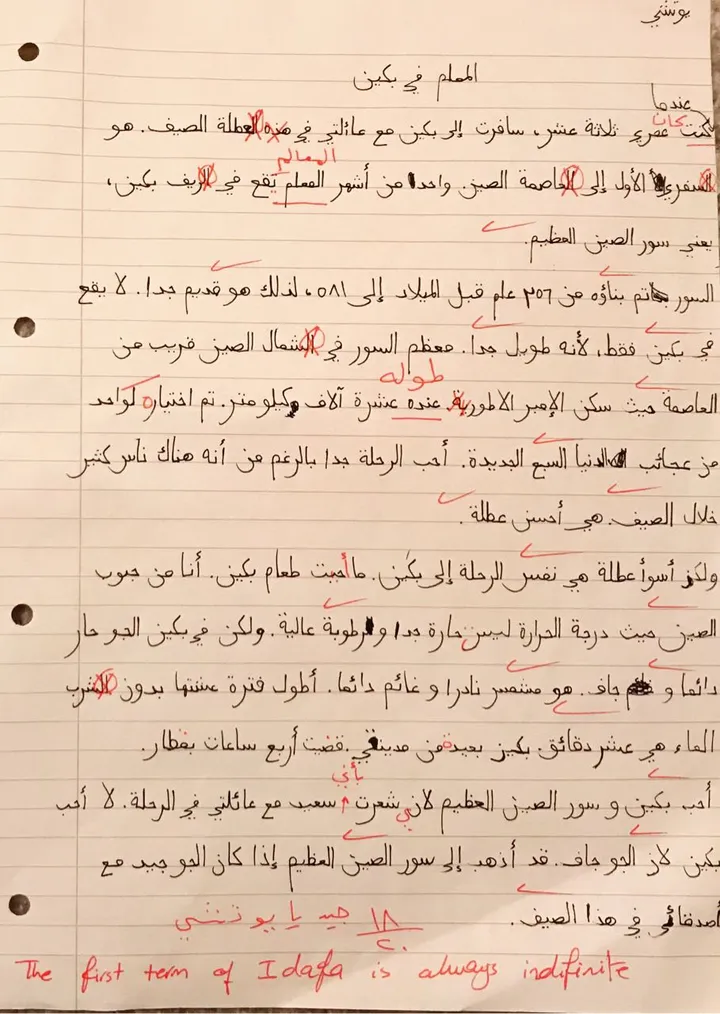 يوتشي
المعلم في بكين
عندما
كنت كان عمري ثلاثة عشر، سافرت إلى بكين مع عائلتي في العطلة الصيف. هو
المعالم
السفري الأول إلى العاصمة الصين. واحدا من أشهر المعلم يقع في الريف بكين،
يعني سور الصين العظيم.
السور تم بناؤه من ٢٥٦ عام قبل الميلاد إلى ٥٨١، لذلك هو قديم جدا. لا يقع
في بكين فقط، لأنه طويل جدا. معظم السور في الشمال الصين قريب من
طوله
العاصمة حيث سكن الإمبر الاطورية. عنده عشرة آلاف كيلومتر. تم اختياره كواحد
من عجائب الدنيا السبع الجديدة. أحب الرحلة جدا بالرغم من أنه هناك ناس كثير
خلال الصيف. هي أحسن عطلة.
ولكن أسوأ عطلة هي نفس الرحلة إلى بكين. ما أحببت طعام بكين. أنا من جنوب
الصين حيث درجة الحرارة ليس حارة جدا و رطوبة عالية. ولكن في بكين الجو حار
دائما و جاف. هو مشمس نادرا و غائم دائما. أطول فترة عشتها بدون الشرب
الماء هي عشر دقائق. بكين بعيدة من مدينتي. قضيت أربع ساعات بقطار.
بأني
أحب بكين و سور الصين العظيم لاني شعرت سعيد مع عائلتي في الرحلة. لا أحب
بكين لان الجو جاف. قد أذهب إلى سور الصين العظيم إذا كان الجو جيد مع
أصدقائي في هذا الصيف.
١٨/٢٠ جيد يا يوتشي
The first term of Idafa is always indifinite